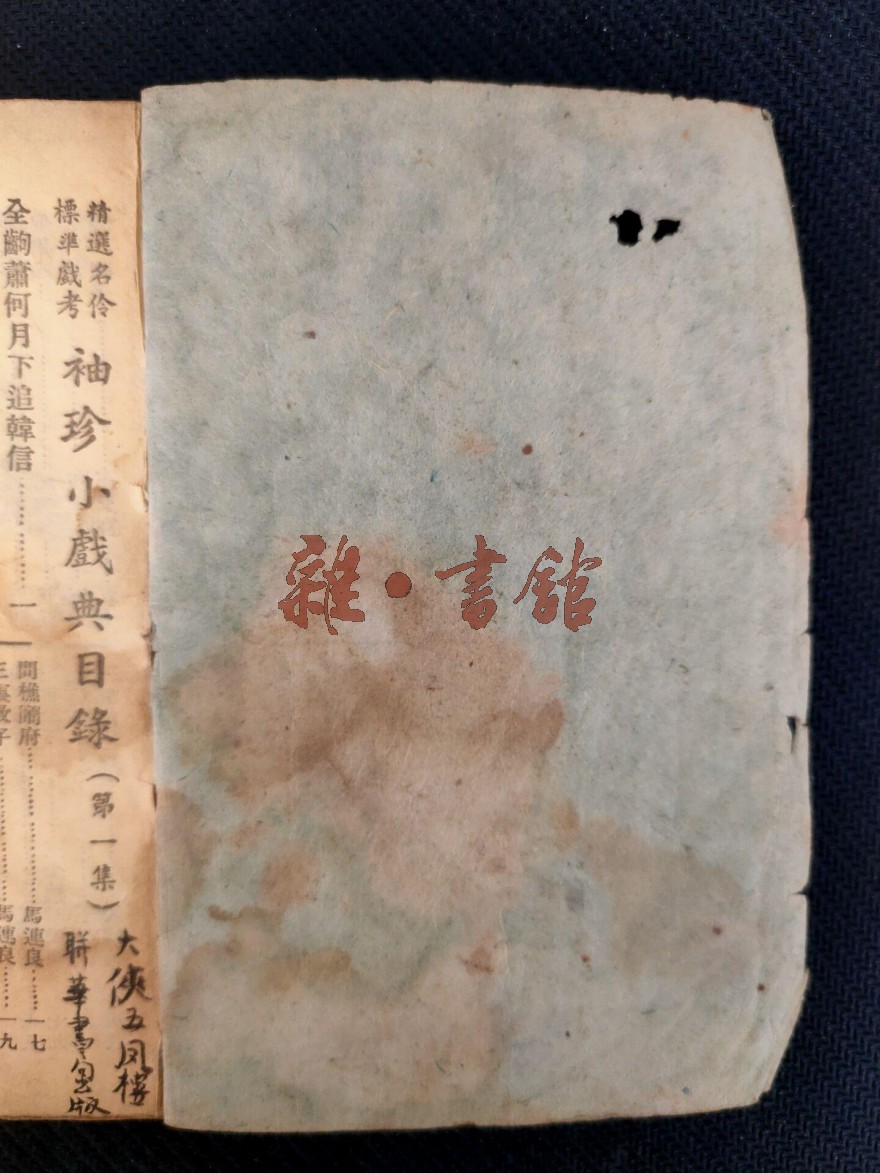 精選名伶
標準戲考
袖珍小戲典目錄（第一集）
大俠五凤樓
联華書局版
全齣蕭何月下追韓信……………一
問樵鬧府……………馬連良……一七
馬連良……一九
雜·書館